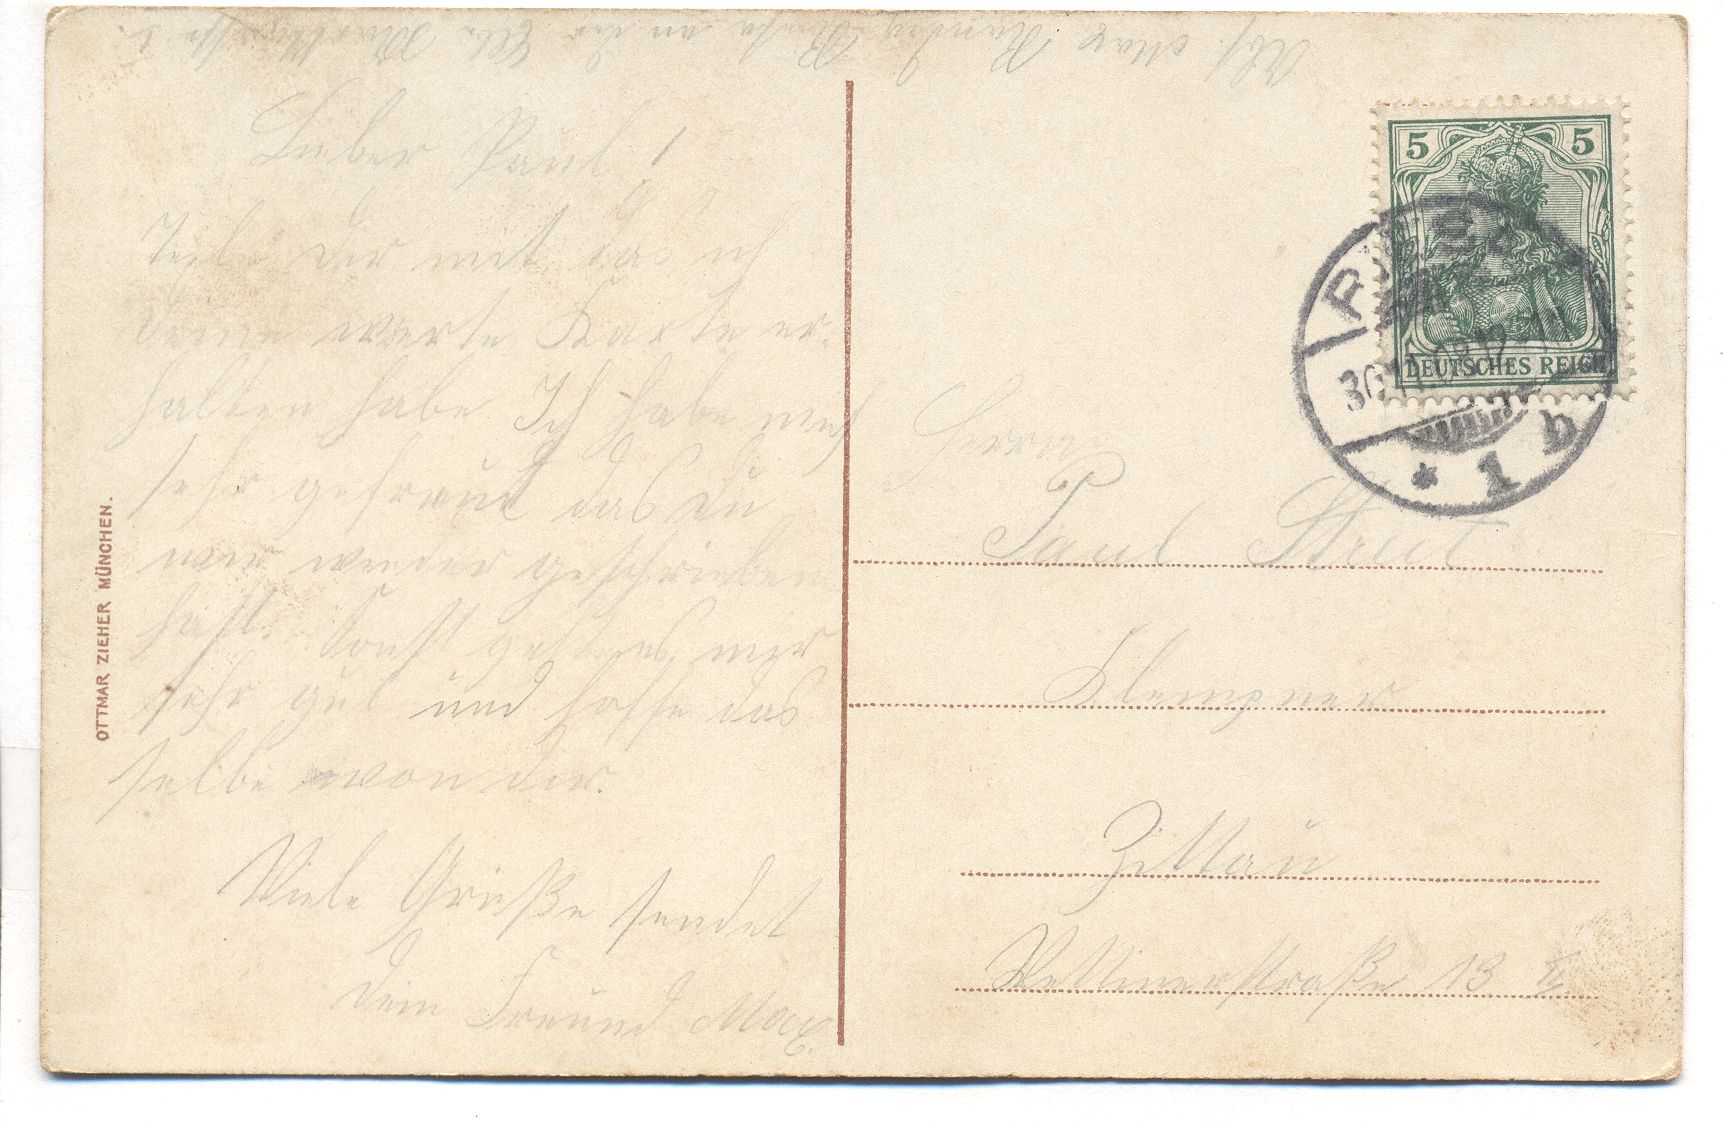 Lieber Paul!
Teile dir mit das ich
deine werte Karte er-
halten habe. Ich habe mich
sehr gefreut das du
mir wieder geschrieben
hast. Sonst geht es mir
sehr gut und hoffe das
selbe von dir.
Viele Grüße sendet
dein Freund Max.
Abs. Max an der Elbe
OTTMAR ZIEHER MÜNCHEN.
5 5
DEUTSCHES REICH
* 1 b
Herrn
Paul
Klempner
Zittau
straße 13 II